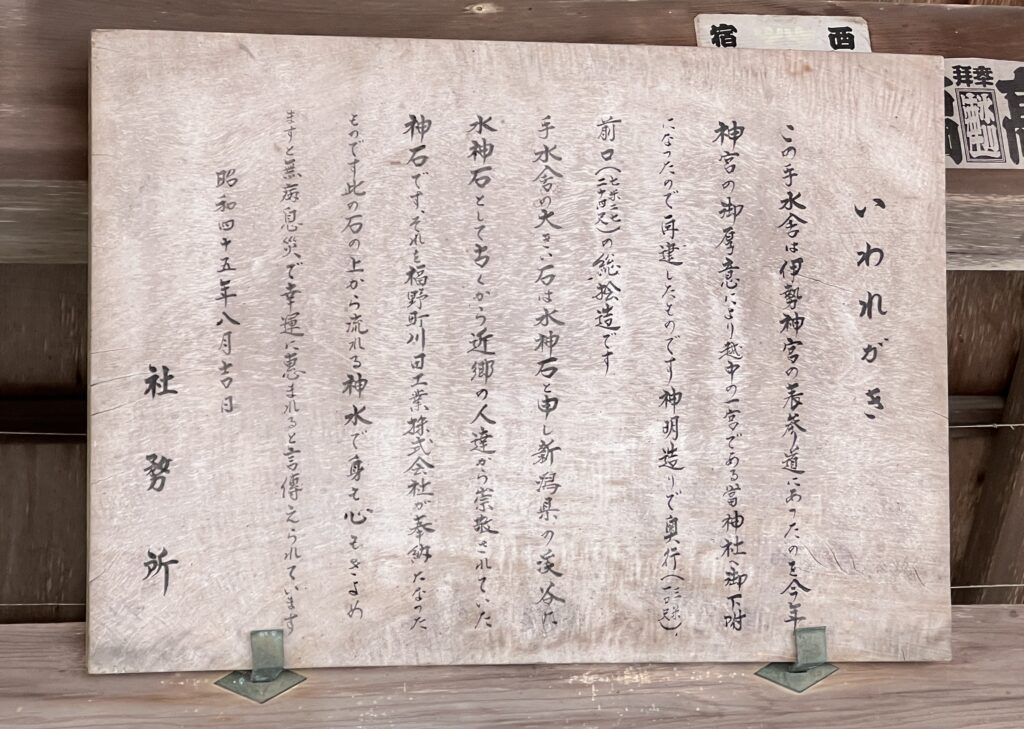 いわれがき
この手水舎は伊勢神宮の表参道にあったのを今年
神宮の御厚意により越中の一宮である當神社へ御下附
になったので再建したものです神明造りで奥行
前口の総桧造です
手水舎の大きい石は水神石と申し新潟県の渓谷に
水神石として古くから近郷の人達から崇敬されていた
神石です、それを福野町川田工業株式会社が奉納になった
ものです此の石の上から流れる神水で身も心もきよめ
ますと無病息災で幸運に恵まれると言傳えられています
昭和四十五年八月吉日
社務所
西
宿
奉拜
高